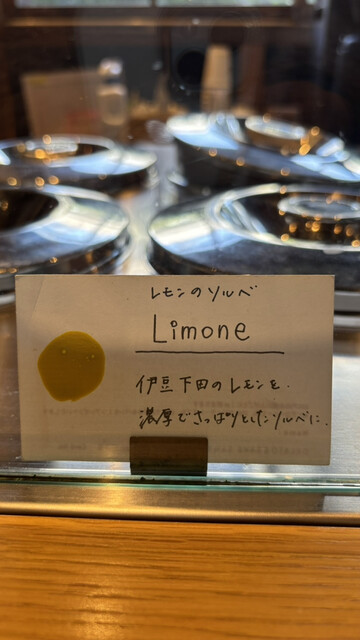 レモンのソルベ
Limone
伊豆下田のレモンを、
濃厚でさっぱりとしたソルベに。